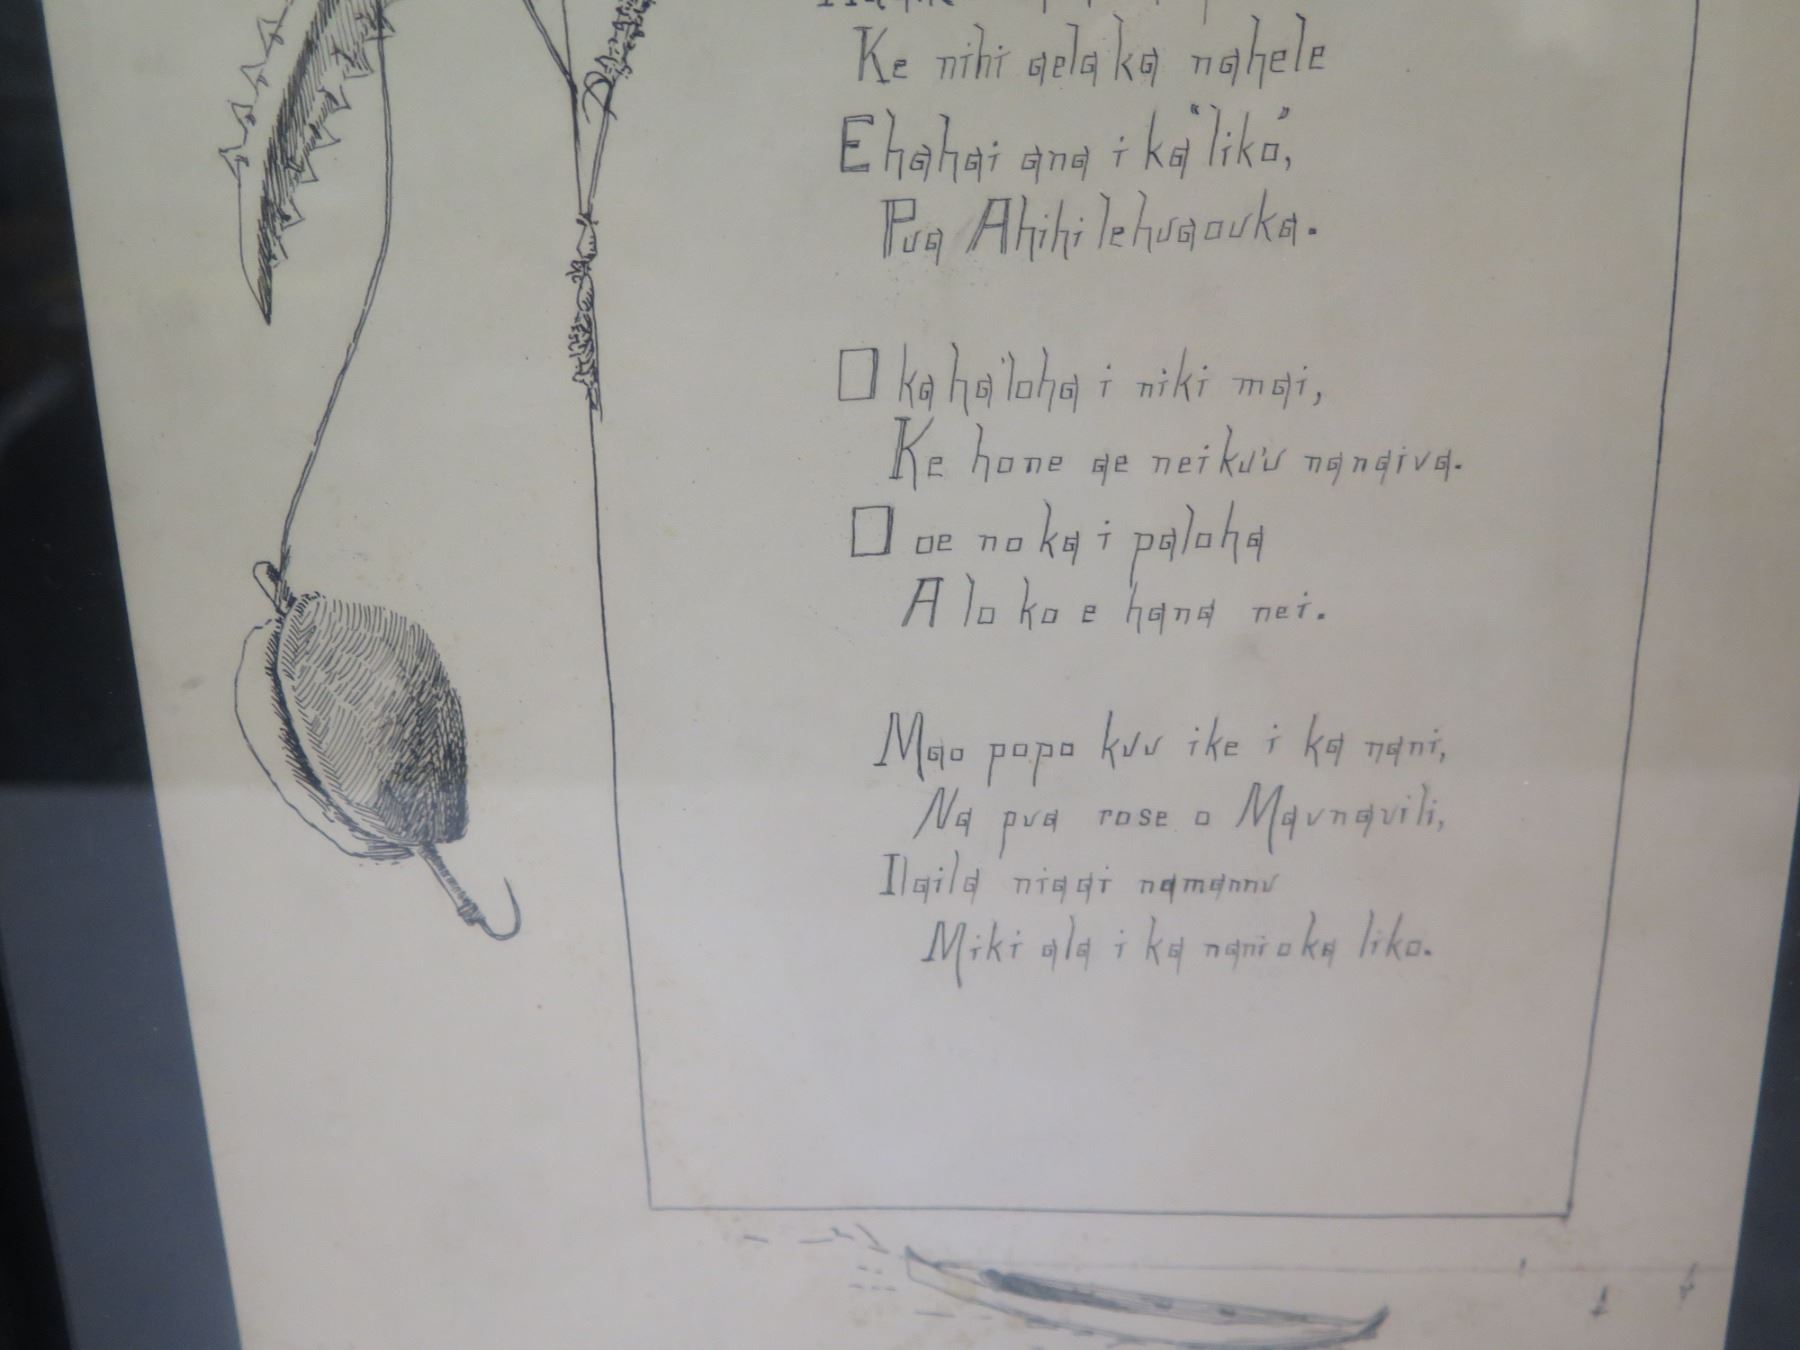 Ke nihi aela ka nahele
E hahai ana i ka "liko",
Pua Ahihi lehuaouka.
O ka ha'loha i niki mai,
Ke hone ae nei ku'u nanaiva.
O oe no ka i paloha
A lo ko e hana nei.
Mao popo kuu ike i ka nani,
Na pua rose o Maunauili,
Ilaila niaai namannu
Miki ala i ka nani o ka liko.